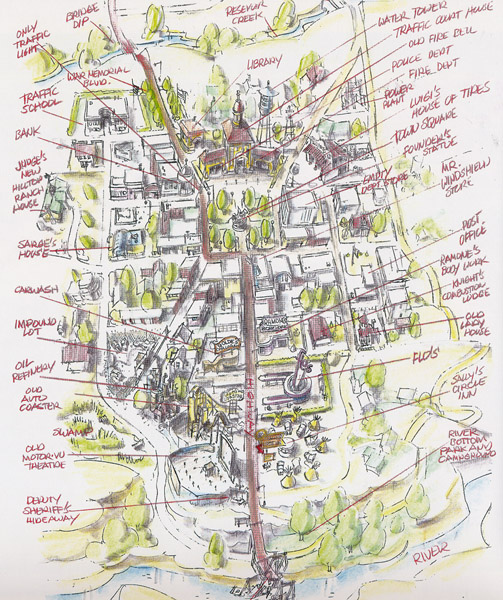 ONLY
TRAFFIC
LIGHT
BRIDGE
DIP
RESEVOIR
CREEK
WATER TOWER
TRAFFIC COURT HOUSE
OLD FIRE BELL
POLICE DEPT
FIRE DEPT
LIBRARY
WAR MEMORIAL
BLVD.
POWER
PLANT
LUIGI'S
HOUSE OF TIRES
TOWN SQUARE
FOUNDER'S
STATUE
TRAFFIC
SCHOOL
BANK
EMPTY
DEPT STORE
MR.
WINDSHIELD
STORE
JUDGE'S
NEW
HILLTOP
RANCH
HOUSE
SARGE'S
HOUSE
POST
OFFICE
RAMONE'S
BODY WORK
KNIGHT'S
COMBUSTION
LODGE
OLD
LARDY
HOUSE
CARWASH
IMPOUND
LOT
OIL
REFINERY
FLO'S
HIGHWAY
OLD
AUTO
COASTER
SALLY'S
CIRCLE
INN
SWAMP
OLD
MOTOR-VU
THEATRE
RIVER
BOTTOM
PARK AND
CAMPGROUND
DEPUTY
SHERIFF'S
HIDEAWAY
RIVER